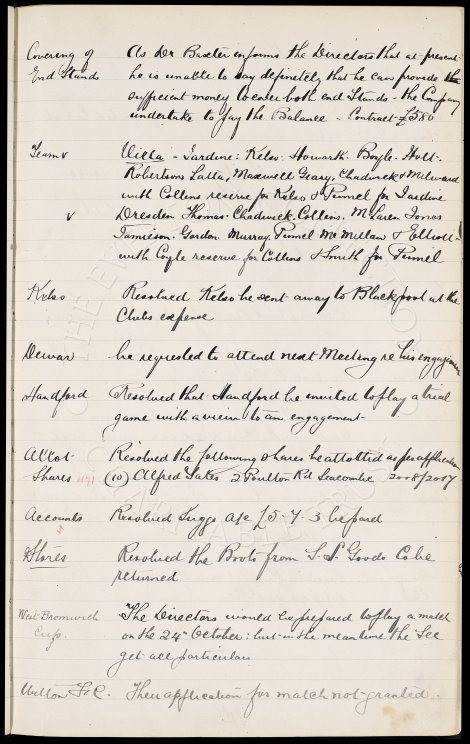 Covering of End Stands
As Dr Baxter informs the Directors that at present
he is unable to say definitely that he can provide the
sufficient money to cover both end Stands - the Company
undertake to pay the Balance - Contract £580
Team v
Villa - Jardine: Kelso. Howarth. Boyle. Holt.
Robertson Latta, Maxwell Geary, Chadwick & Milward
with Collins reserve for Kelso & Pinnel for Jardine
v
Dresden Thomas. Chadwick. Collins. McLaren Jones
Jamieson. Gordon. Murray, Pinnel McMillan & Elliott
with Coyle reserve for Collins & Smith for Pinnel
Kelso
Resolved Kelso be sent away to Blackpool at the
Clubs expense
Dewar
be requested to attend next Meeting re his engagement
Handford
Resolved that Handford be invited to play a trial
game with a view to an engagement
Allot Shares
Resolved the following shares be allotted as per application
471 (10) Alfred 2 Poulton Rd Seacombe 2008/2017
Accounts
Resolved a/c £5-7-3 be paid
Stores
Resolved the Boots from Goods Co be
returned
West Bromwich Cup.
The Directors would be prepared to play a match
on the 24th October: but in the meantime the Sec
get all particulars
Witton F.C.
Their application for match not granted.